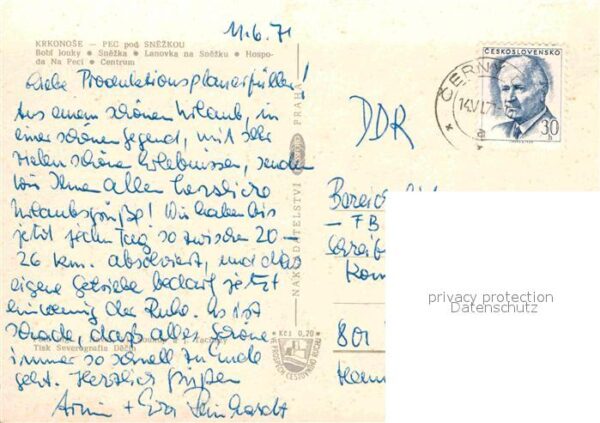 11.6.71
KRKONOŠE — PEC pod SNĚŽKOU
Bobí louky • Sněžka • Lanovka na Sněžku • Hospo-
da Na Peci • Centrum
Liebe Produktionsplanerfüller!
Aus einem schönen Urlaub, in
einer schönen Gegend, mit sehr
vielen schönen Erlebnissen, senden
wir Ihnen allen herzliche
Urlaubsgrüße! Wir haben bis
jetzt jeden Tag so zwischen 20 -
26 km. absolviert, und das
eigene Getriebe bedarf jetzt
ein wenig der Ruhe. Es ist
schade, daß alles Schöne
immer so schnell zu Ende
geht. Herzlich grüßen
Armin + Eva
Tisk Severografia Děčín
NAKLADATELSTVÍ
PRAHA
Kčs 0,20
ČESKOSLOVENSKO
30
h
14.VI.71
a
DDR
Bereich
– FB
801
privacy protection
Datenschutz